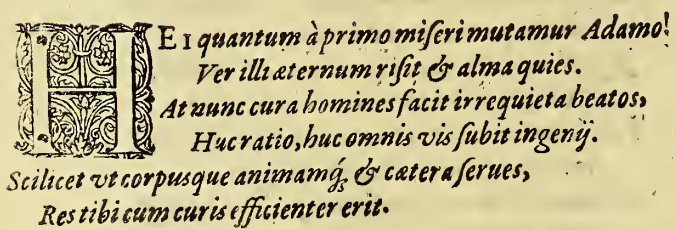 HEI quantum à primo miseri mutamur Adamo!
Ver illi æternum risit & alma quies.
At nunc cura homines facit irrequieta beatos,
Huc ratio, huc omnis vis subit ingenij.
Scilicet vt corpusque animamq́; & cætera serues,
Res tibi cum curis efficienter erit.